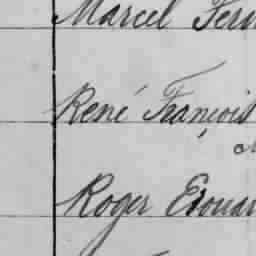 Marcel Fern
René François
Roger Edouar